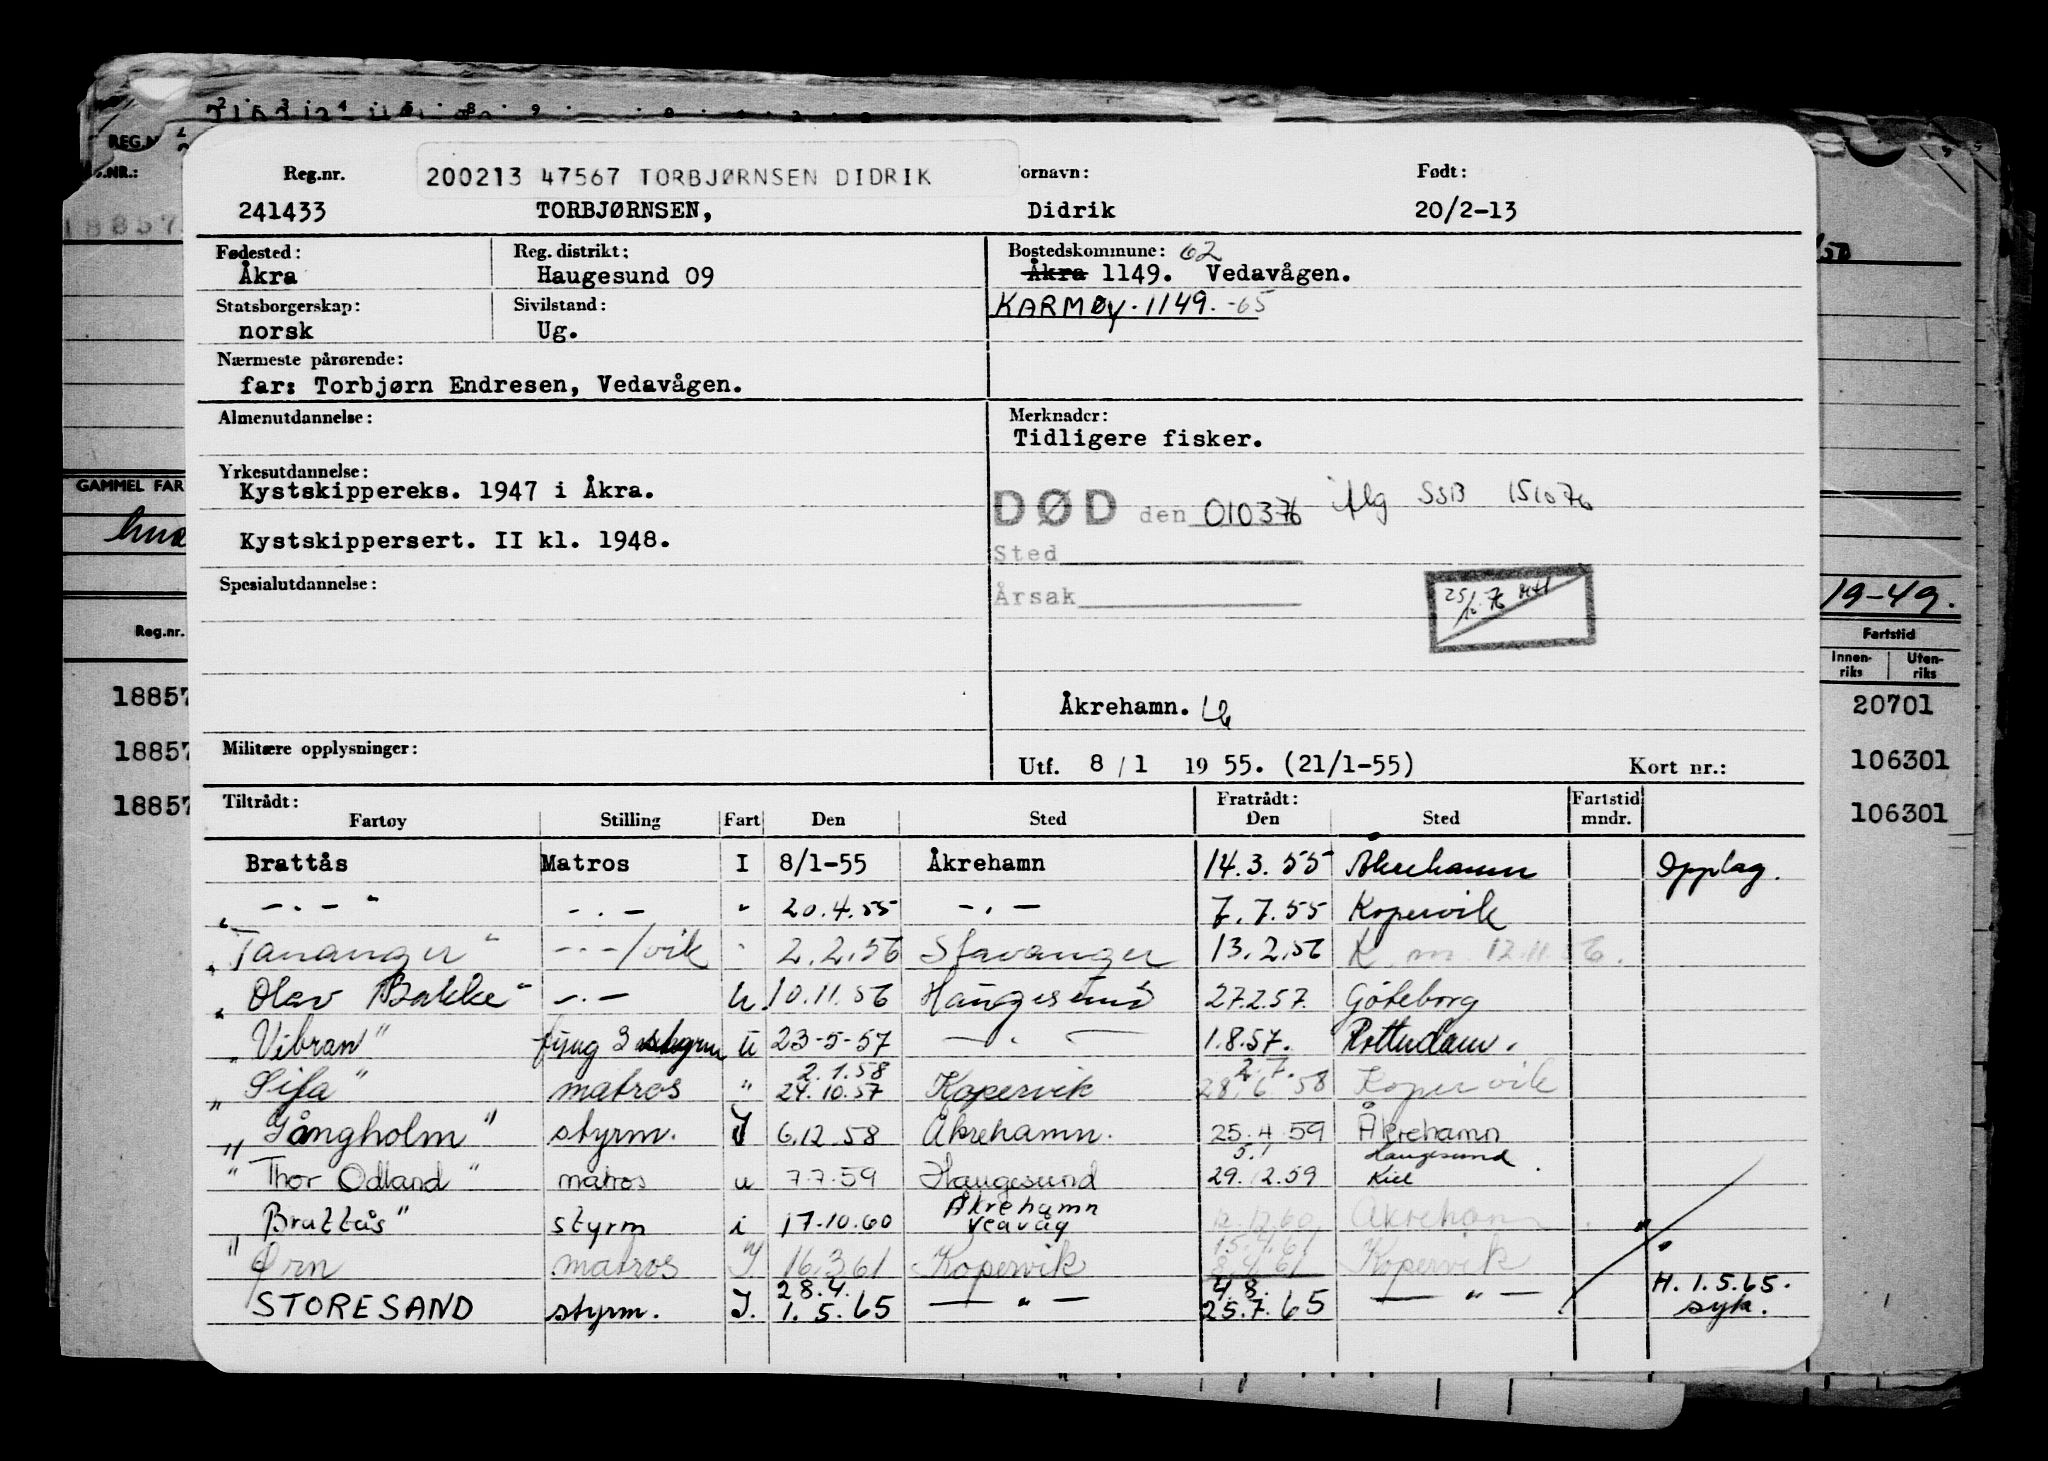 REG.N
Reg.nr. 200213 47567 TORBJØRNSEN DIDRIK ornavn: Født:
241433 TORBJØRNSEN, Didrik 20/2-13
Fødested: Reg. distrikt: Bostedskommune: 62
Åkra Haugesund 09 Åkra 1149. Vedavågen.
Statsborgerskap: Sivilstand: KARMØY. 1149. -65
norsk Ug.
Nærmeste pårørende:
far: Torbjørn Endresen, Vedavågen.
Almenutdannelse: Merknader:
Tidligere fisker.
Yrkesutdannelse:
Kystskippereks. 1947 i Åkra.
DØD den 010376 iflg SSB 151076
Kystskippersert. II kl. 1948.
Sted
Spesialutdannelse:
Årsak
Åkrehamn.
Militære opplysninger:
Utf. 8/1 1955. (21/1-55) Kort nr.:
Tiltrådt: Fratrådt: Fartstid
Fartøy Stilling Fart Den Sted Den Sted mndr.
Brattås Matros I 8/1-55 Åkrehamn 14.3.55 Åkrehamn Opplag.
" -.- " -.- " 20.4.55 -.- 7.7.55 Kopervik
"Tananger" -.-/vik " 2.2.56 Stavanger 13.2.56 K. m. 12.11.56.
"Olav Bakke" -.- U. 10.11.56 Haugesund 27.2.57. Göteborg
"Vibran" fung 3 styrm u 23-5-57 - . - 1.8.57. Rotterdam.
2.1.58 2.7.
"Sifa" matros " 24.10.57 Kopervik 28.6.58 Kopervik
"Gångholm" styrm. I 6.12.58 Åkrehamn. 25.4.59 Åkrehamn
5.1 Haugesund
"Thor Odland" matros u 7.7.59 Haugesund 29.12.59 Kiel
Åkrehamn
"Brattås" styrm i 17.10.60 Veavåg 12.12.60 Åkrehamn "
15.4.61
"Ørn matros I. 16.3.61 Kopervik 8.4.61 Kopervik "
28.4. 4.8. H. 1.5.65.
STORESAND styrm. I. 1.5.65 - " - 25.7.65 - " - syk.
GAMMEL FAR
Reg.nr.
18857
18857
18857
19-49.
Fartstid
Innen-riks Uten-riks
20701
106301
106301